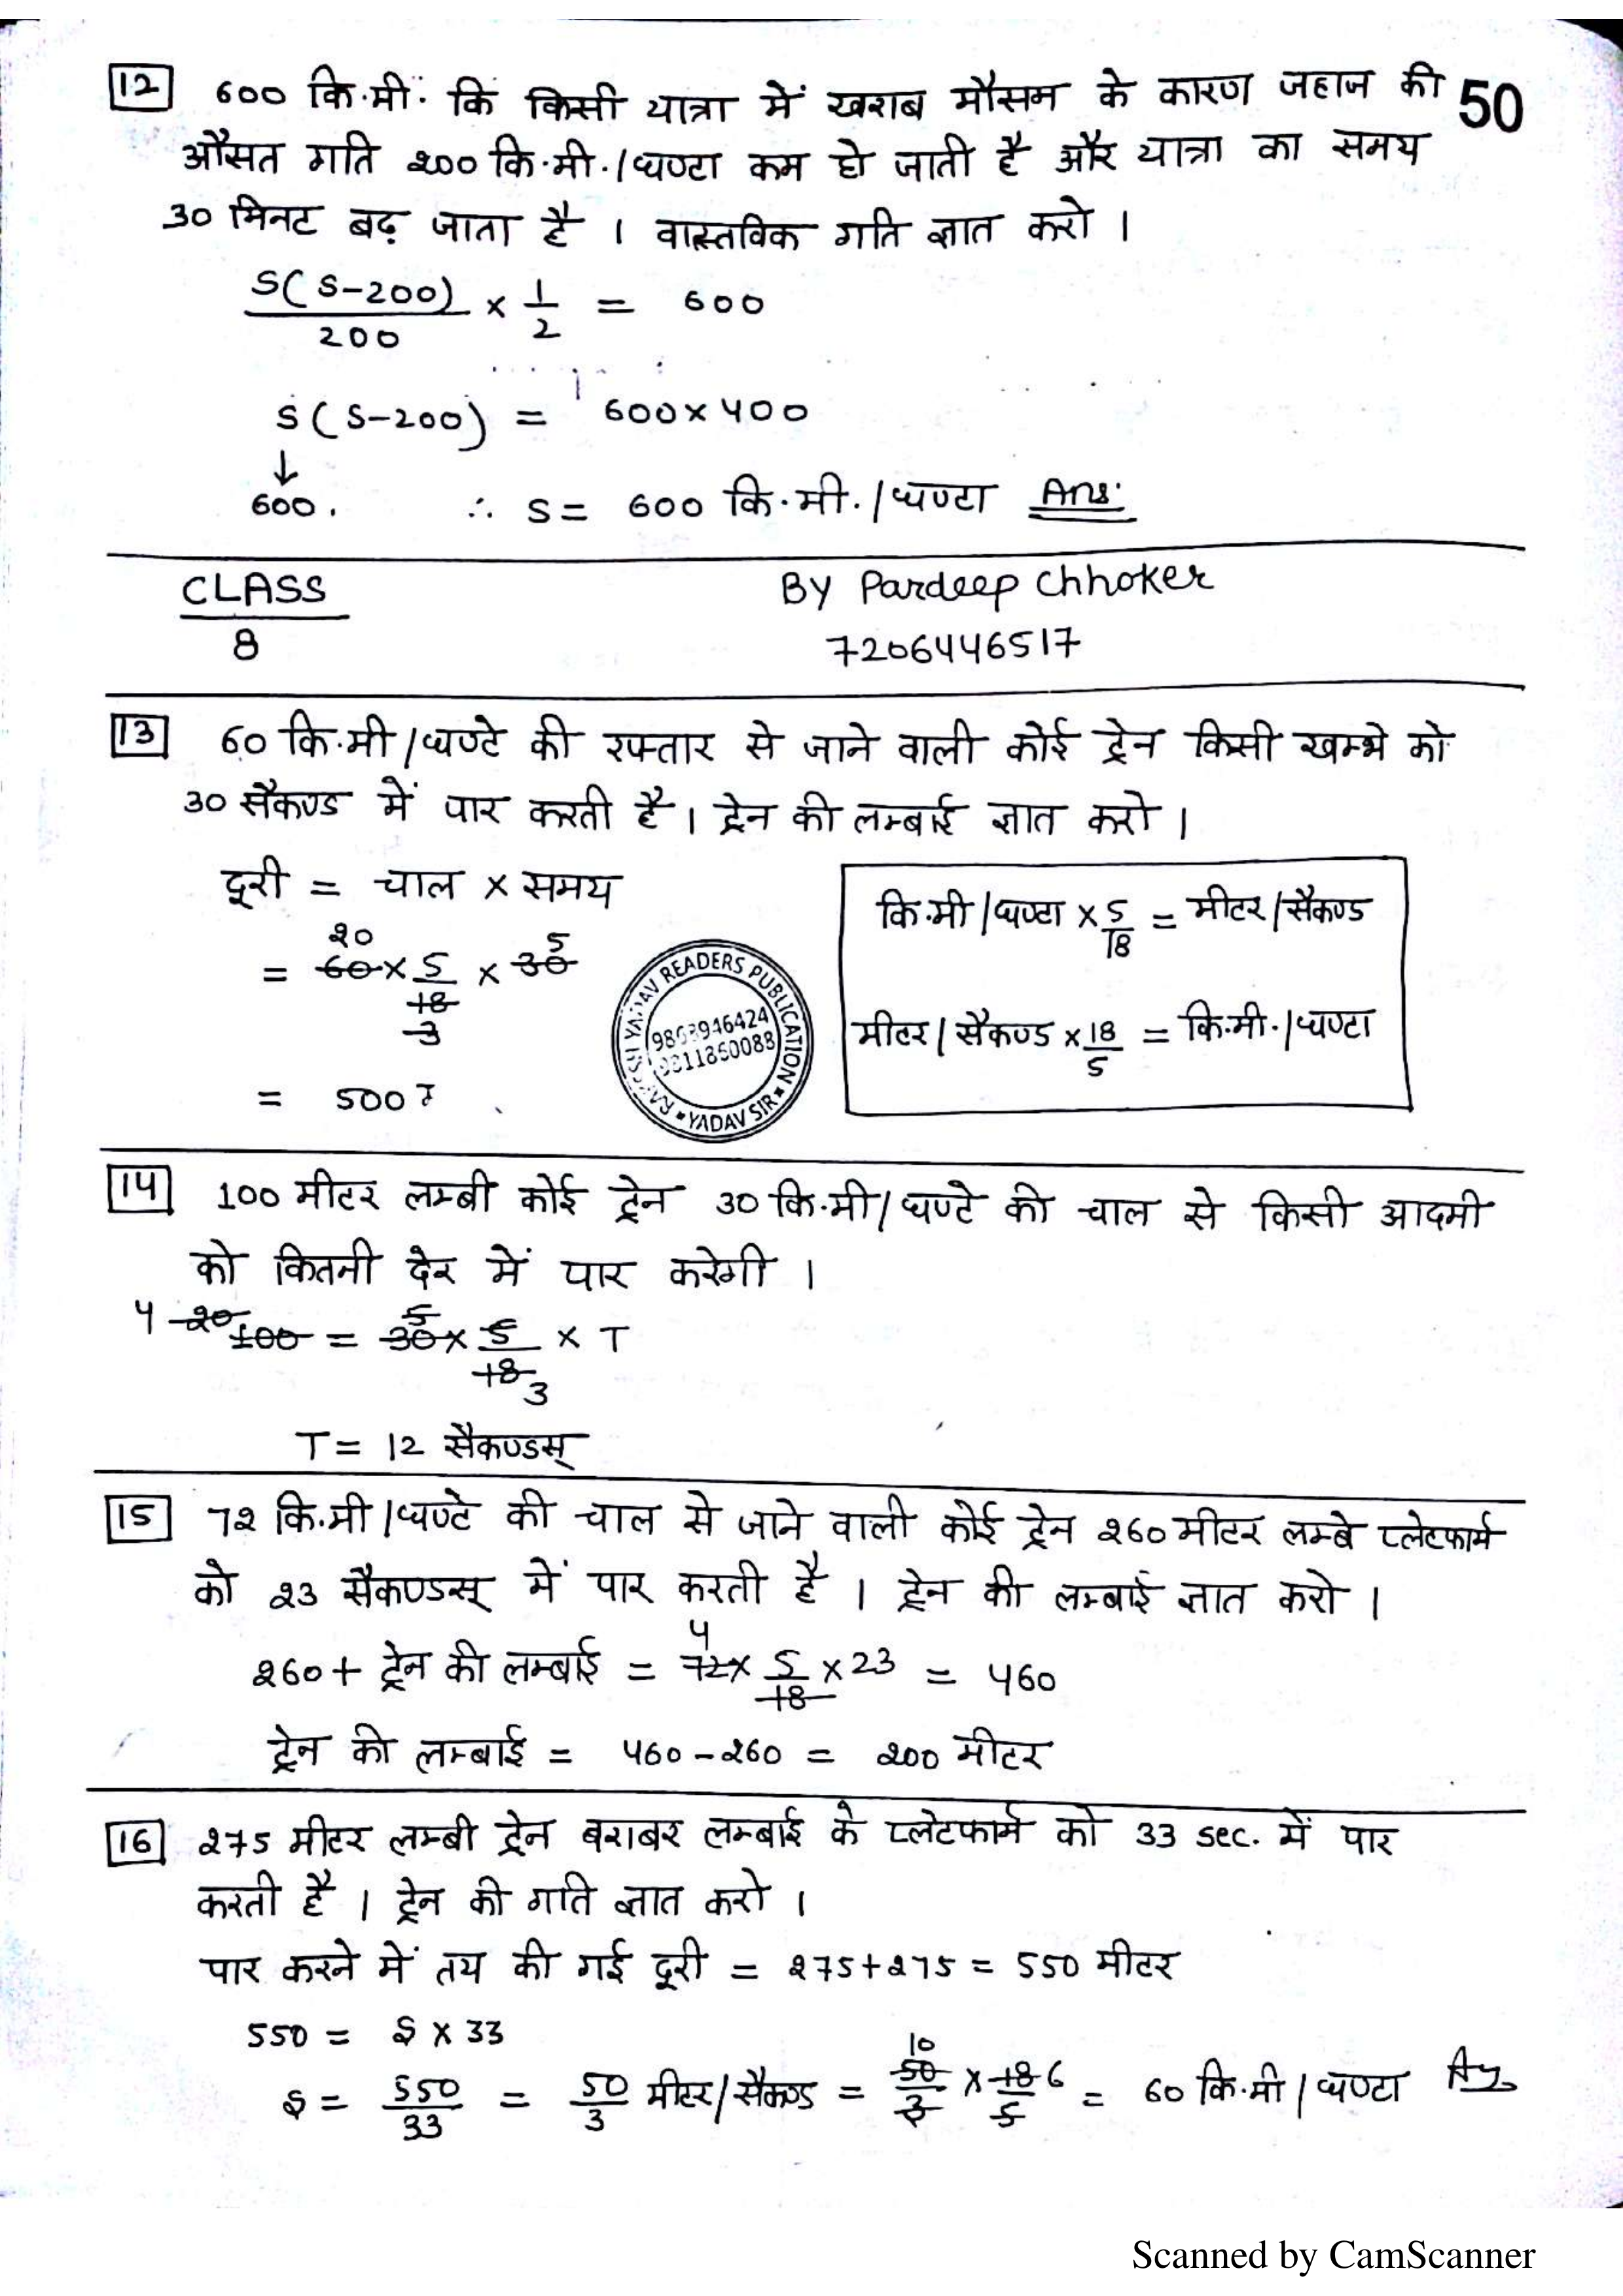 12 600 कि.मी. कि किसी यात्रा में खराब मौसम के कारण जहाज की 50
औसत गति 200 कि.मी./घण्टा कम हो जाती है और यात्रा का समय
30 मिनट बढ़ जाता है । वास्तविक गति ज्ञात करो ।
S(S-200)/200 × 1/2 = 600
S(S-200) = 600×400
↓
600. ∴ S = 600 कि.मी./घण्टा Ans.
CLASS BY Pardeep Chhoker
8 7206446517
13 60 कि.मी/घण्टे की रफ्तार से जाने वाली कोई ट्रेन किसी खम्भे को
30 सैकण्ड में पार करती है । ट्रेन की लम्बाई ज्ञात करो ।
दूरी = चाल × समय
20 5
= 60 × 5/18 × 30
3
= 500
कि.मी/घण्टा × 5/18 = मीटर/सैकण्ड
मीटर/सैकण्ड × 18/5 = कि.मी./घण्टा
YADAV READERS PUBLICATION
YADAV SIR
14 100 मीटर लम्बी कोई ट्रेन 30 कि.मी/घण्टे की चाल से किसी आदमी
को कितनी देर में पार करेगी ।
4 20 5
100 = 30 × 5/18 × T
3
T = 12 सैकण्डस्
15 72 कि.मी/घण्टे की चाल से जाने वाली कोई ट्रेन 260 मीटर लम्बे प्लेटफार्म
को 23 सैकण्डस् में पार करती है । ट्रेन की लम्बाई ज्ञात करो ।
4
260 + ट्रेन की लम्बाई = 72 × 5/18 × 23 = 460
ट्रेन की लम्बाई = 460-260 = 200 मीटर
16 275 मीटर लम्बी ट्रेन बराबर लम्बाई के प्लेटफार्म को 33 sec. में पार
करती है । ट्रेन की गति ज्ञात करो ।
पार करने में तय की गई दूरी = 275+275 = 550 मीटर
550 = S × 33
10
S = 550/33 = 50/3 मीटर/सैकण्ड = 50/3 × 18/5 6 = 60 कि.मी/घण्टा Ans
Scanned by CamScanner